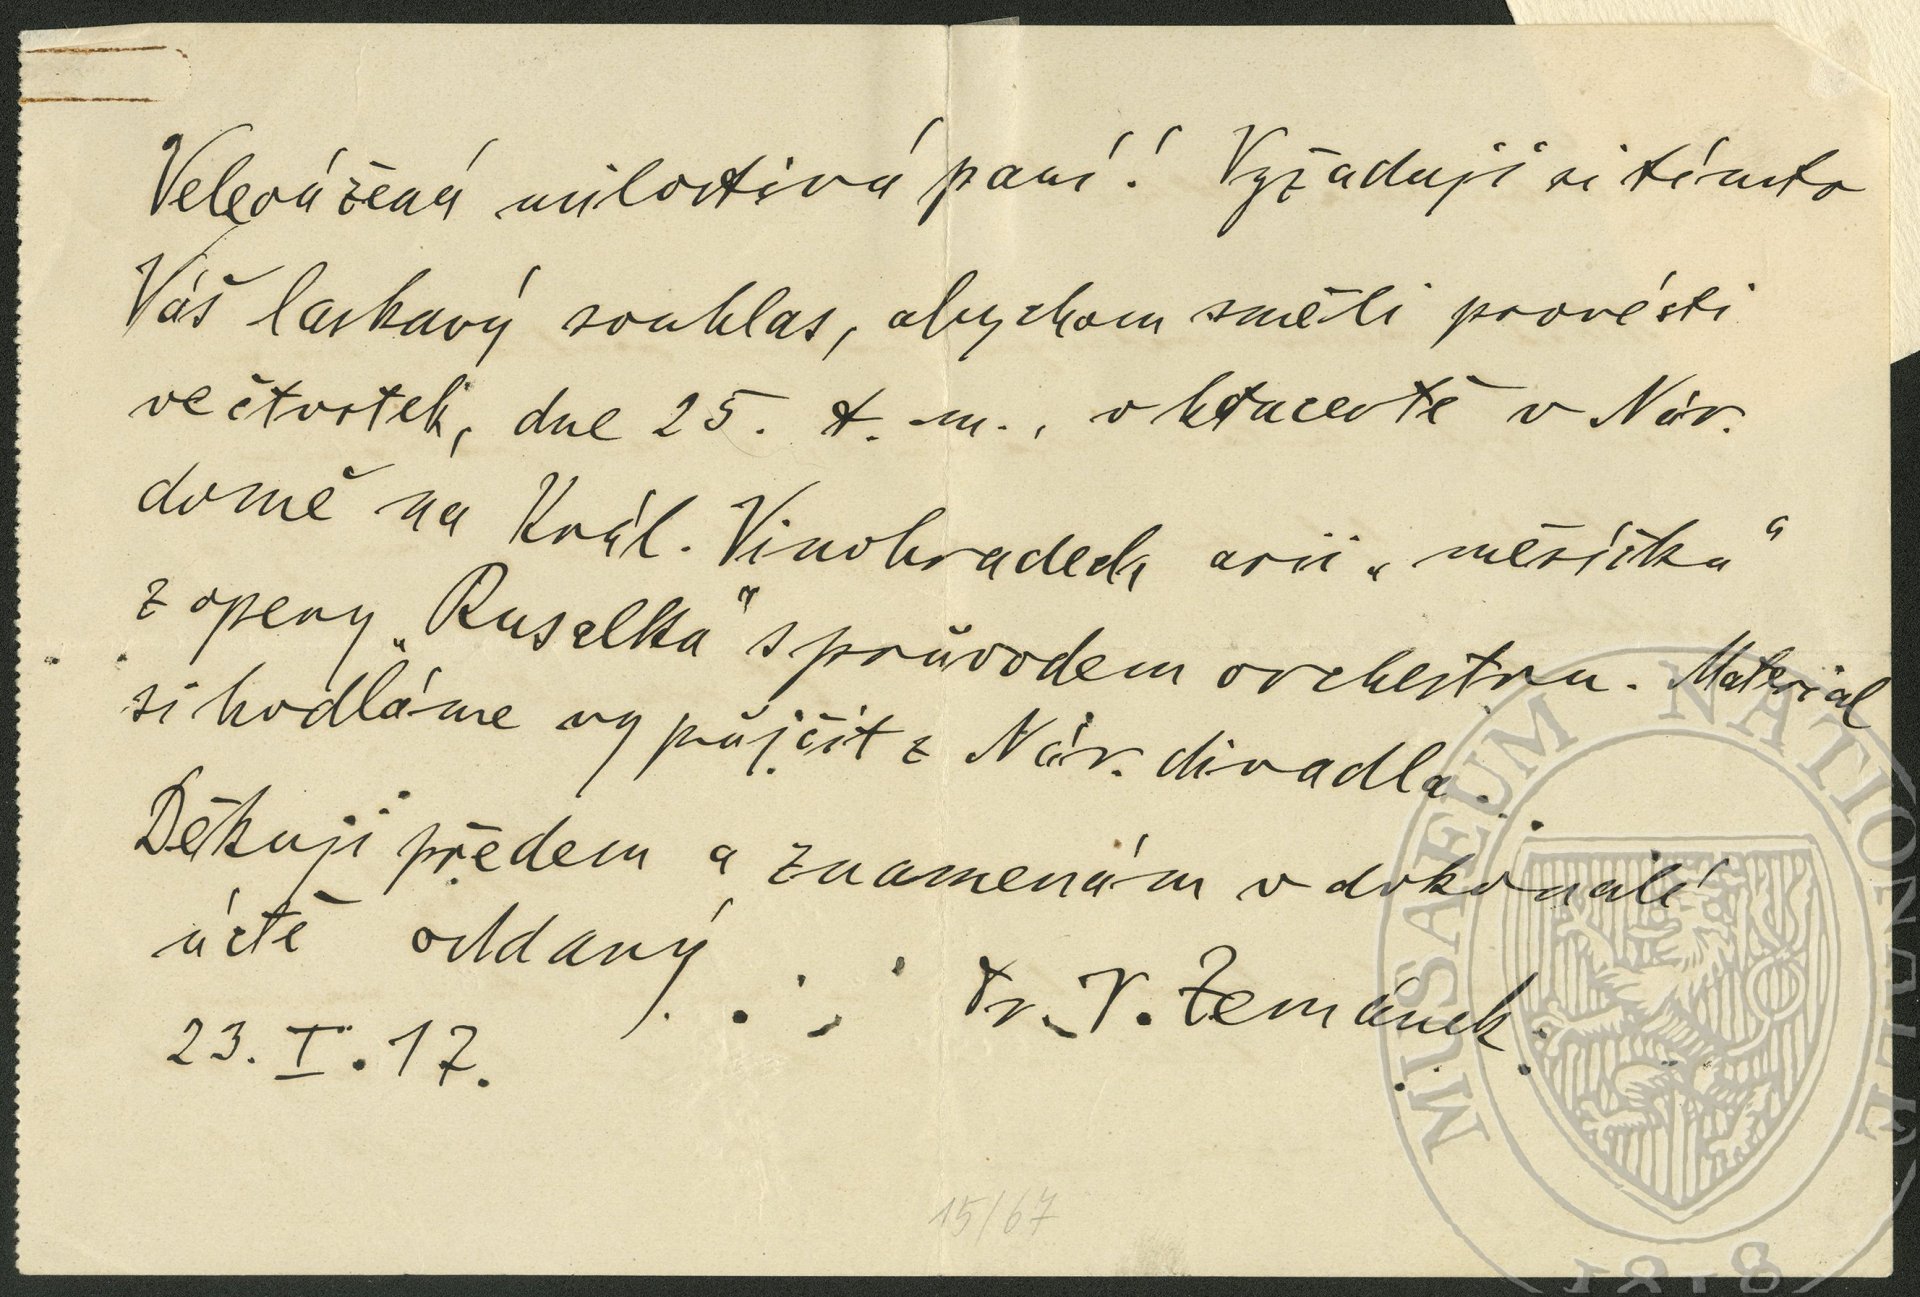 Velevážená milostivá paní! Vyžaduji si tímto
Váš laskavý souhlas, abychom směli provésti
ve čtvrtek, dne 25. t. m., v koncertě v Nár.
domě na Král. Vinohradech arii „měsíčku“
z opery „Rusalka“ s průvodem orchestru. Material
si hodláme vypůjčit z Nár. divadla.
Děkuji předem a znamenám v dokonalé
úctě oddaný
Dr. V. Zemánek.
23. I. 17.
15/67
MUSAEUM NATIONALE
1818